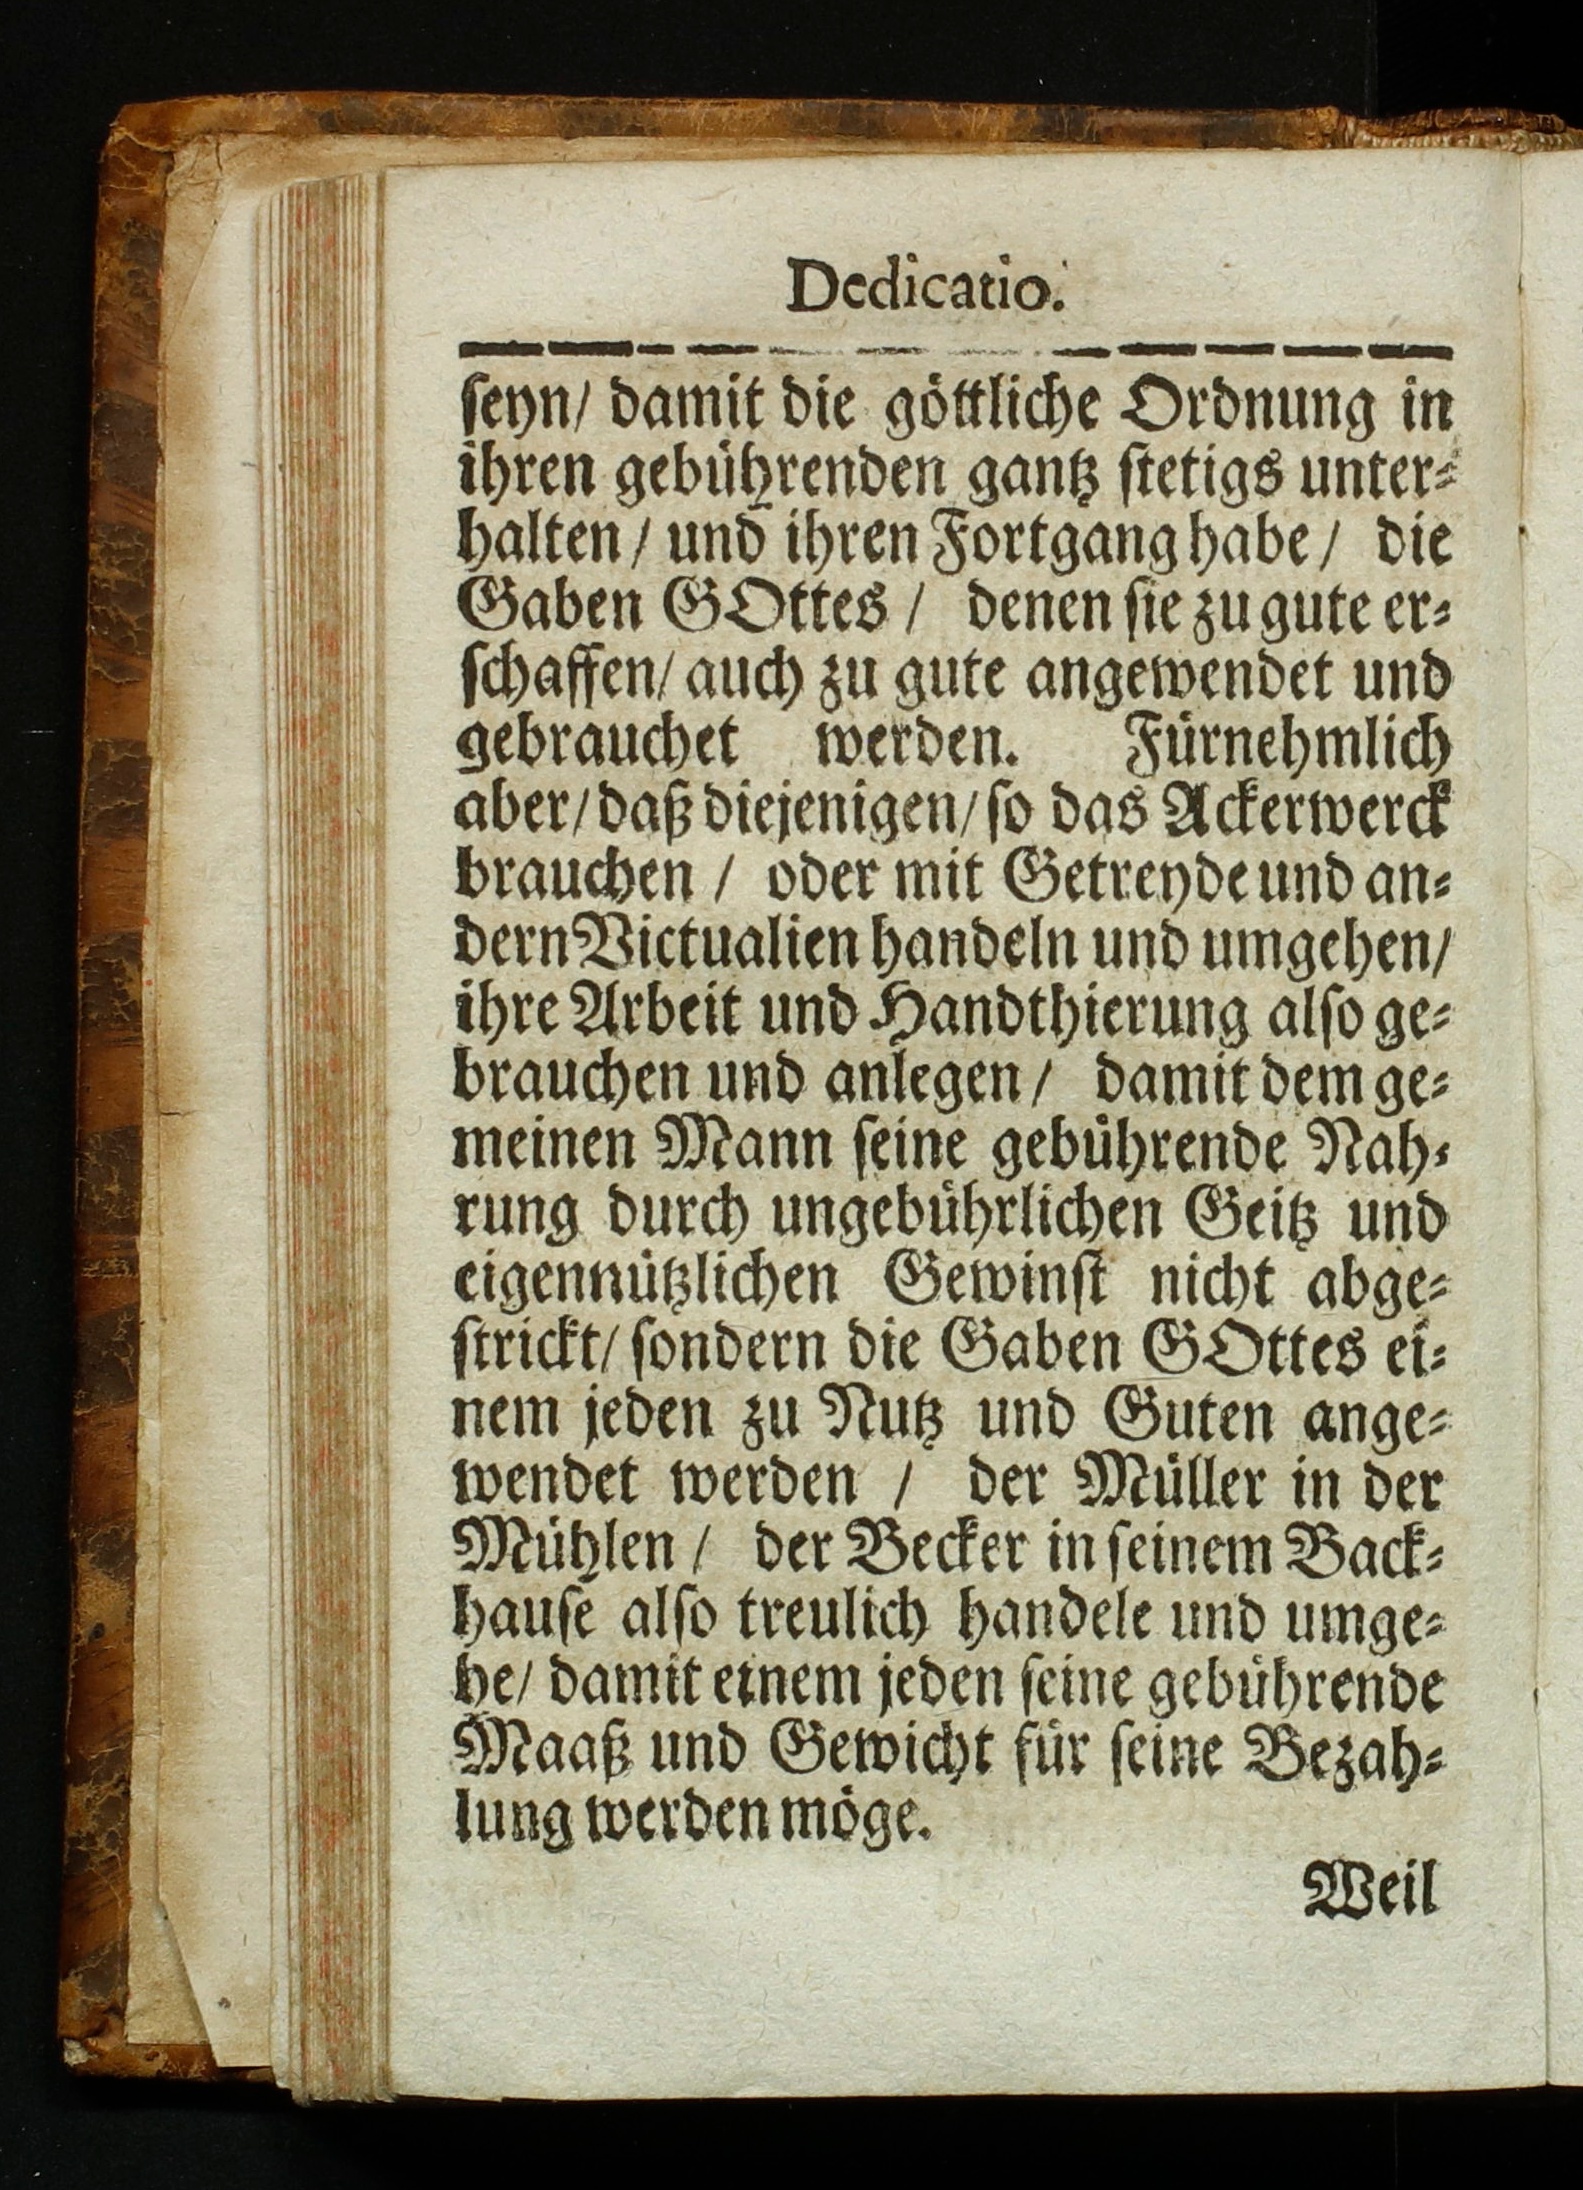 Dedicatio.
ſeyn/ damit die göttliche Ordnung in
ihren gebührenden gantz ſtetigs unter-
halten / und ihren Fortgang habe / die
Gaben GOttes / denen ſie zu gute er-
ſchaffen/ auch zu gute angewendet und
gebrauchet werden. Fürnehmlich
aber/ daß diejenigen/ ſo das Ackerwerck
brauchen / oder mit Getreyde und an-
dern Victualien handeln und umgehen/
ihre Arbeit und Handthierung alſo ge-
brauchen und anlegen / damit dem ge-
meinen Mann ſeine gebührende Nah-
rung durch ungebührlichen Geitz und
eigennützlichen Gewinſt nicht abge-
ſtrickt/ ſondern die Gaben GOttes ei-
nem jeden zu Nutz und Guten ange-
wendet werden / der Müller in der
Mühlen / der Becker in ſeinem Back-
hauſe alſo treulich handele und umge-
he/ damit einem jeden ſeine gebührende
Maaß und Gewicht für ſeine Bezah-
lung werden möge.
Weil